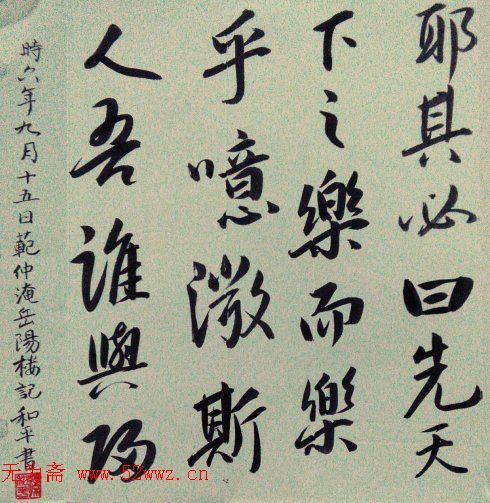 耶其必曰先天
下之樂而樂
乎噫微斯
人吾誰與歸
時六年九月十五日範仲淹岳陽樓記和平書
无为斋 www.52wwz.cn